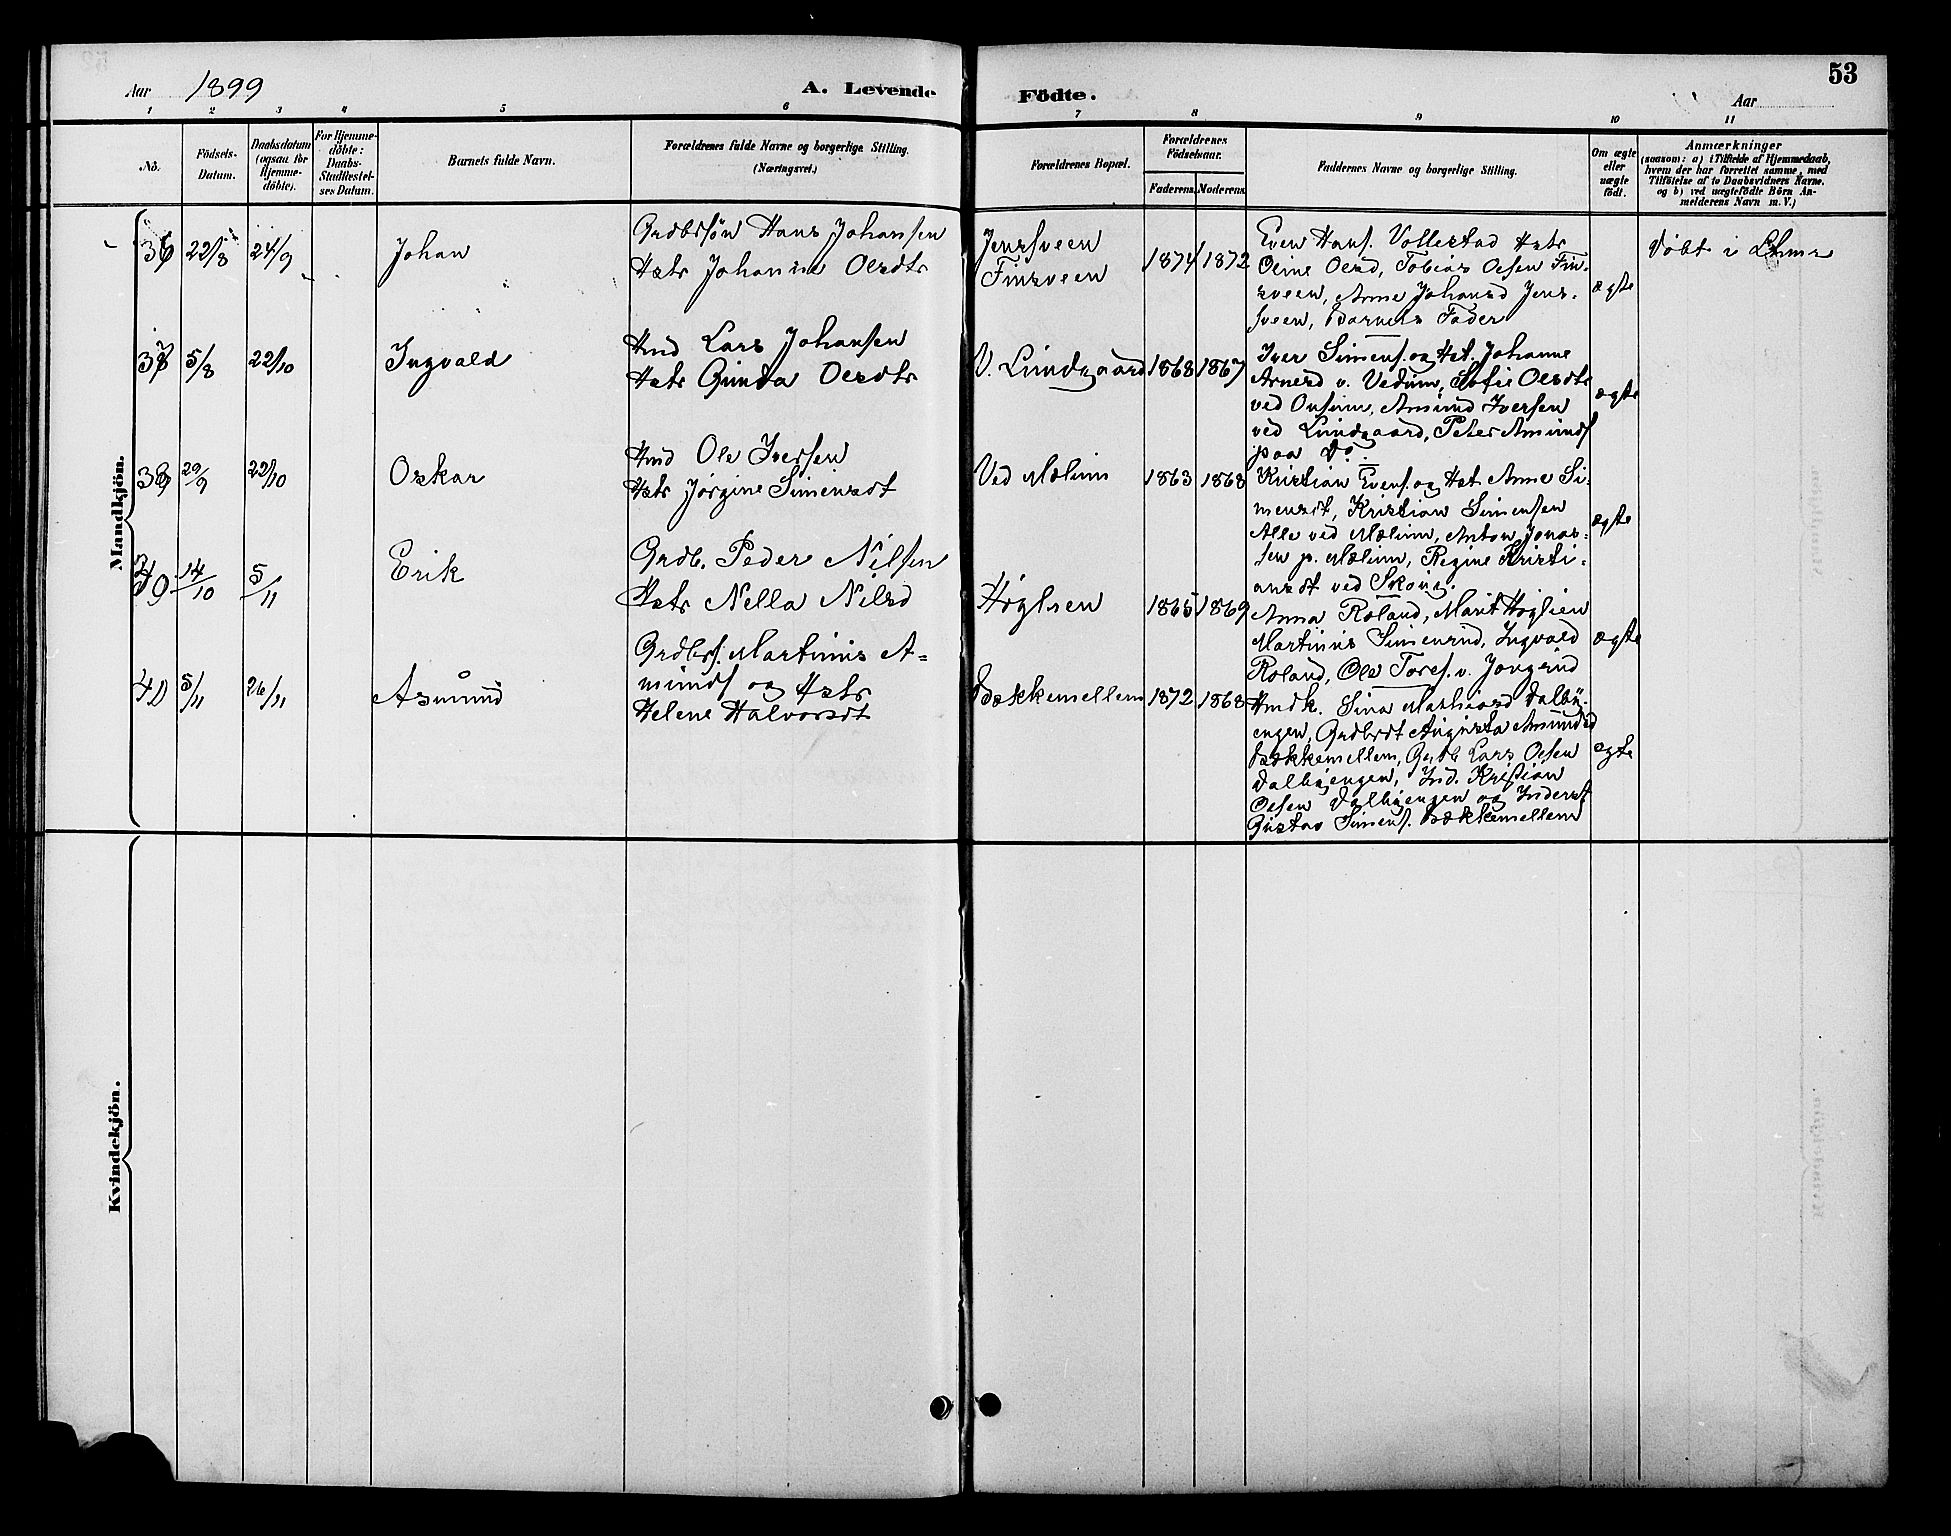 53
Aar 1899
A. Levende Födte.
Aar
1 2 3 4 5 6 7 8 9 10 11
No.
Födsels-
Datum.
Daabsdatum
(ogsaa for
Hjemme-
döbte).
For Hjemme-
döbte:
Daabs-
Stadfæstel-
ses Datum.
Barnets fulde Navn.
Forældrenes fulde Navne og borgerlige Stilling.
(Næringsvei.)
Forældrenes Bopæl.
Forældrenes
Födselsaar.
Faderens.
Moderens.
Faddernes Navne og borgerlige Stilling.
Om ægte
eller
uægte
födt.
Anmærkninger
(saasom: a) i Tilfælde af Hjemmedaab,
hvem der har forrettet samme, med
Tilföielse af to Daabsvidners Navne,
og b) ved uægtefödte Börn An-
melderens Navn m. V.)
Mandkjön.
36 22/8 24/9 Johan
Grdbrsön Hans Johansen
Hstr Johanne Olsdtr
Jensveen
Finsveen
1874 1872
Even Hans. Vollestad Hstr
Oline Olsd, Tobias Olsen Fin-
sveen, Anne Johansd Jens-
sveen, Barnets Fader
ægte
Döbt i
37 5/8 22/10 Ingvald
Hmd Lars Johansen
Hstr Gunda Olsdtr
V. Lundgaard
1868 1867
Iver Simens. og Hst. Johanne
Arnesd v. Vedum, Sofie Olsdtr
ved Onsum, Amund Iversen
ved Lundgaard, Peter Amunds
paa Do.
ægte
38 20/9 22/10 Oskar
Hmd Ole Iversen
Hstr Jörgine Simensdt
Ved Mælum
1863 1868
Kristian Evens. og Hst Anne Si-
mensdt, Kristian Simensen
Alle ved Mælum, Anton Jonas-
sen p. Mælum, Regine Kristi-
ansdt ved Skoug.
ægte
39 14/10 5/11 Erik
Grdb. Peder Nilsen
Hstr Nella Nilsd
Höglien
1865 1869
Anna Roland, Marit Höglien
Martinus Simenrud, Ingvald
Roland, Ole Tores. v. Jongrud
ægte
40 5/11 26/11 Asmund
Grdbrs. Martinus A-
munds og Hstr
Helene Halvorsdt
Bækkemellem
1872 1868
Hmdk. Sina Mathiasd Dalby-
engen, Grdbrdt Augusta Amundsd
Bækkemellem, Grdb Lars Olsen
Dalbyengen, Ind. Kristian
Olsen Dalbyengen og Inderst
Gustav Simens. Bækkemellem
ægte
Kvindekjön.